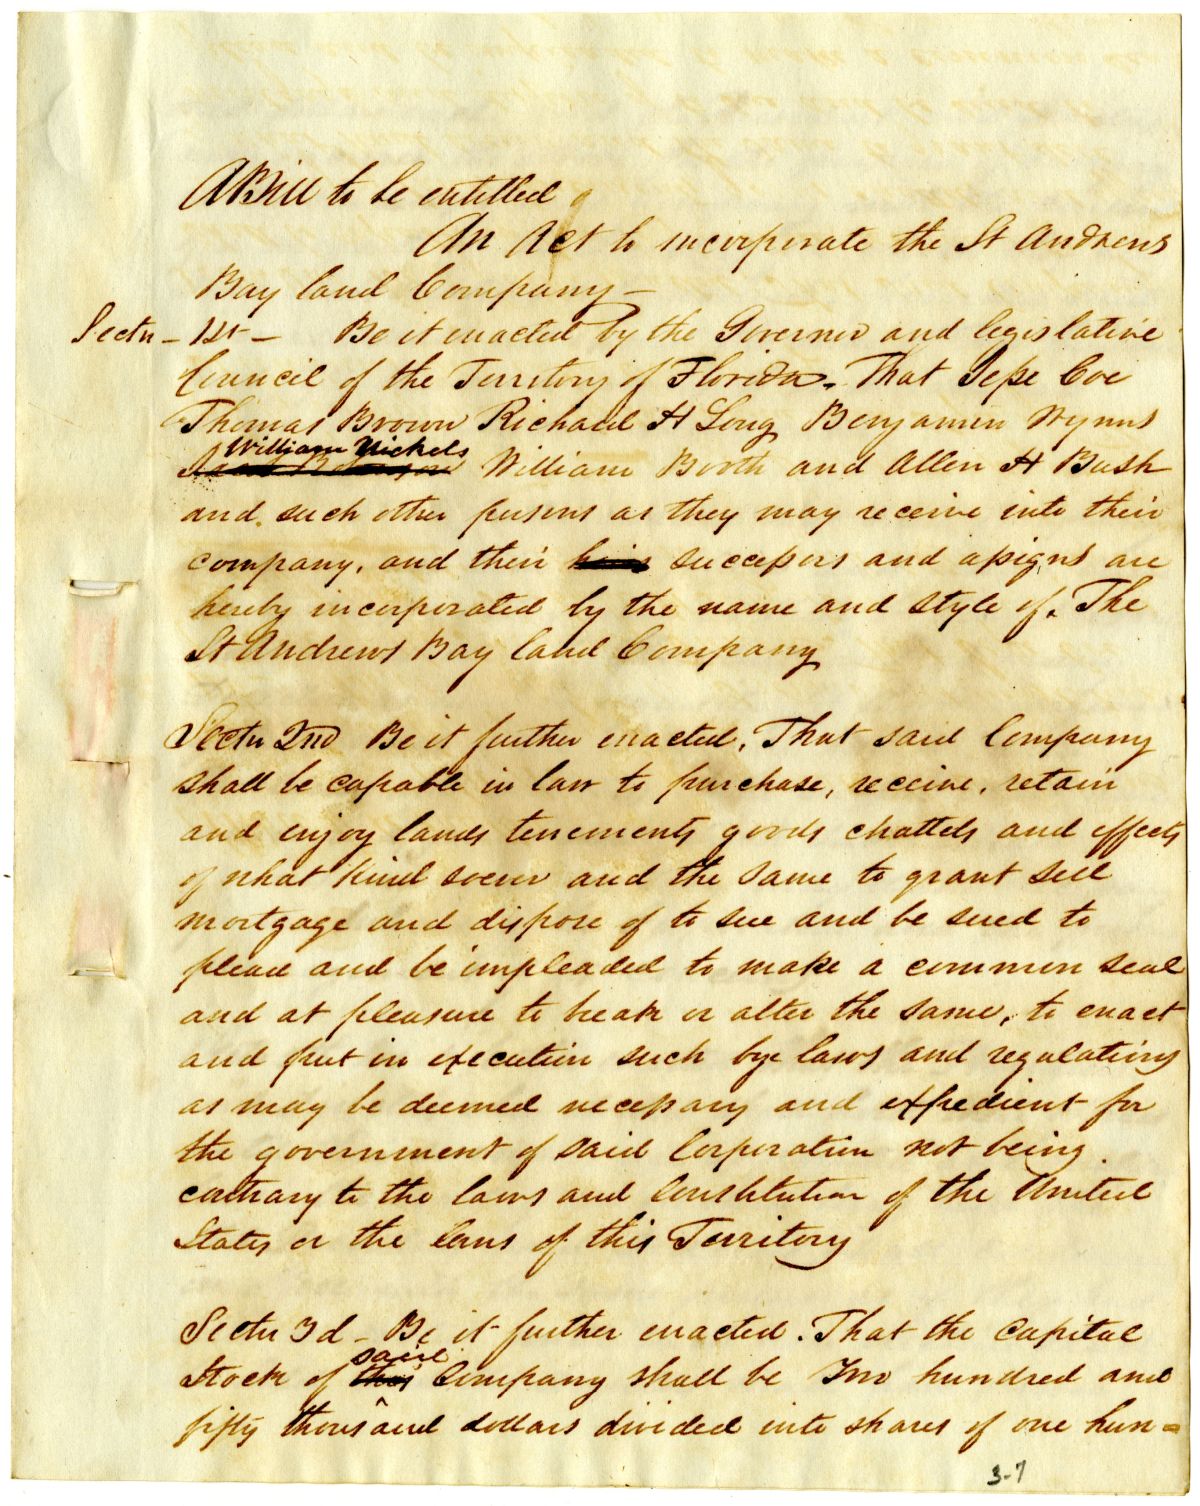 A Bill to be entitled
An Act to incorporate the St Andrews
Bay land Company —
Sectn — 1st — Be it enacted by the Governor and legislative
Council of the Territory of Florida. That Jesse Coe
Thomas Brown Richard H Long Benjamin Wynns
William Nickels
William Booth and Allen H Bush
and such other persons as they may receive into their
company, and their heirs successors and assigns are
hereby incorporated by the name and style of. The
St Andrews Bay land Company
Sectn 2nd Be it further enacted, That said Company
shall be capable in law to purchase, receive, retain
and enjoy lands tenements goods chattels and effects
of what kind soever and the same to grant sell
mortgage and dispose of to sue and be sued to
plead and be impleaded to make a common seal
and at pleasure to break or alter the same, to enact
and put in execution such bye laws and regulations
as may be deemed necessary and expedient for
the government of said Corporation not being
contrary to the laws and Constitution of the United
States or the laws of this Territory
Sectn 3d — Be it further enacted. That the Capital
said
Stock of this Company shall be Two hundred and
fifty thousand dollars divided into shares of one hun=
3-7